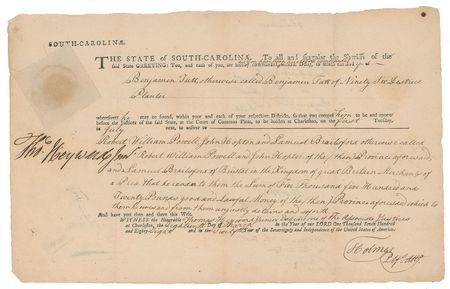 SOUTH-CAROLINA.
THE STATE of SOUTH-CAROLINA. To all and singular the Sheriffs of the
said State GREETING: You, and each of you, are hereby
Benjamin Tutt, otherwise called Benjamin Tutt of Ninety Six District
Planter
wheresoever he may be found, within your and each of your respective Districts, so that you have him to be and appear
before the Justices of the said State, at the Court of Common Pleas, to be holden at Charleston, on the first Tuesday,
in July next, to answer to
Robert William Powell John Hopton and Samuel Brailsford otherwise called
Thos. Heyward Junr. Robert William Powell and John Hopton of the (then) Province aforesaid
and Samuel Brailsford of Bristol in the Kingdom of great Britain Merchants of
a Plea that he render to them the Sum of Five Thousand five Hundred and
Twenty Pounds good and Lawful Money of the (then) Province aforesaid which to
them he owes and from them unjustly detains and
And have you then and there this Writ.
WITNESS the Honorable Thomas Heyward Junior Esquire one of the Associate Justices
at Charleston, the Eighteenth Day of March in the Year of our LORD One Thousand Seven Hundred
and Eighty Eight and in the Twelfth Year of the Sovereignty and Independence of the United States of America.
Holmes